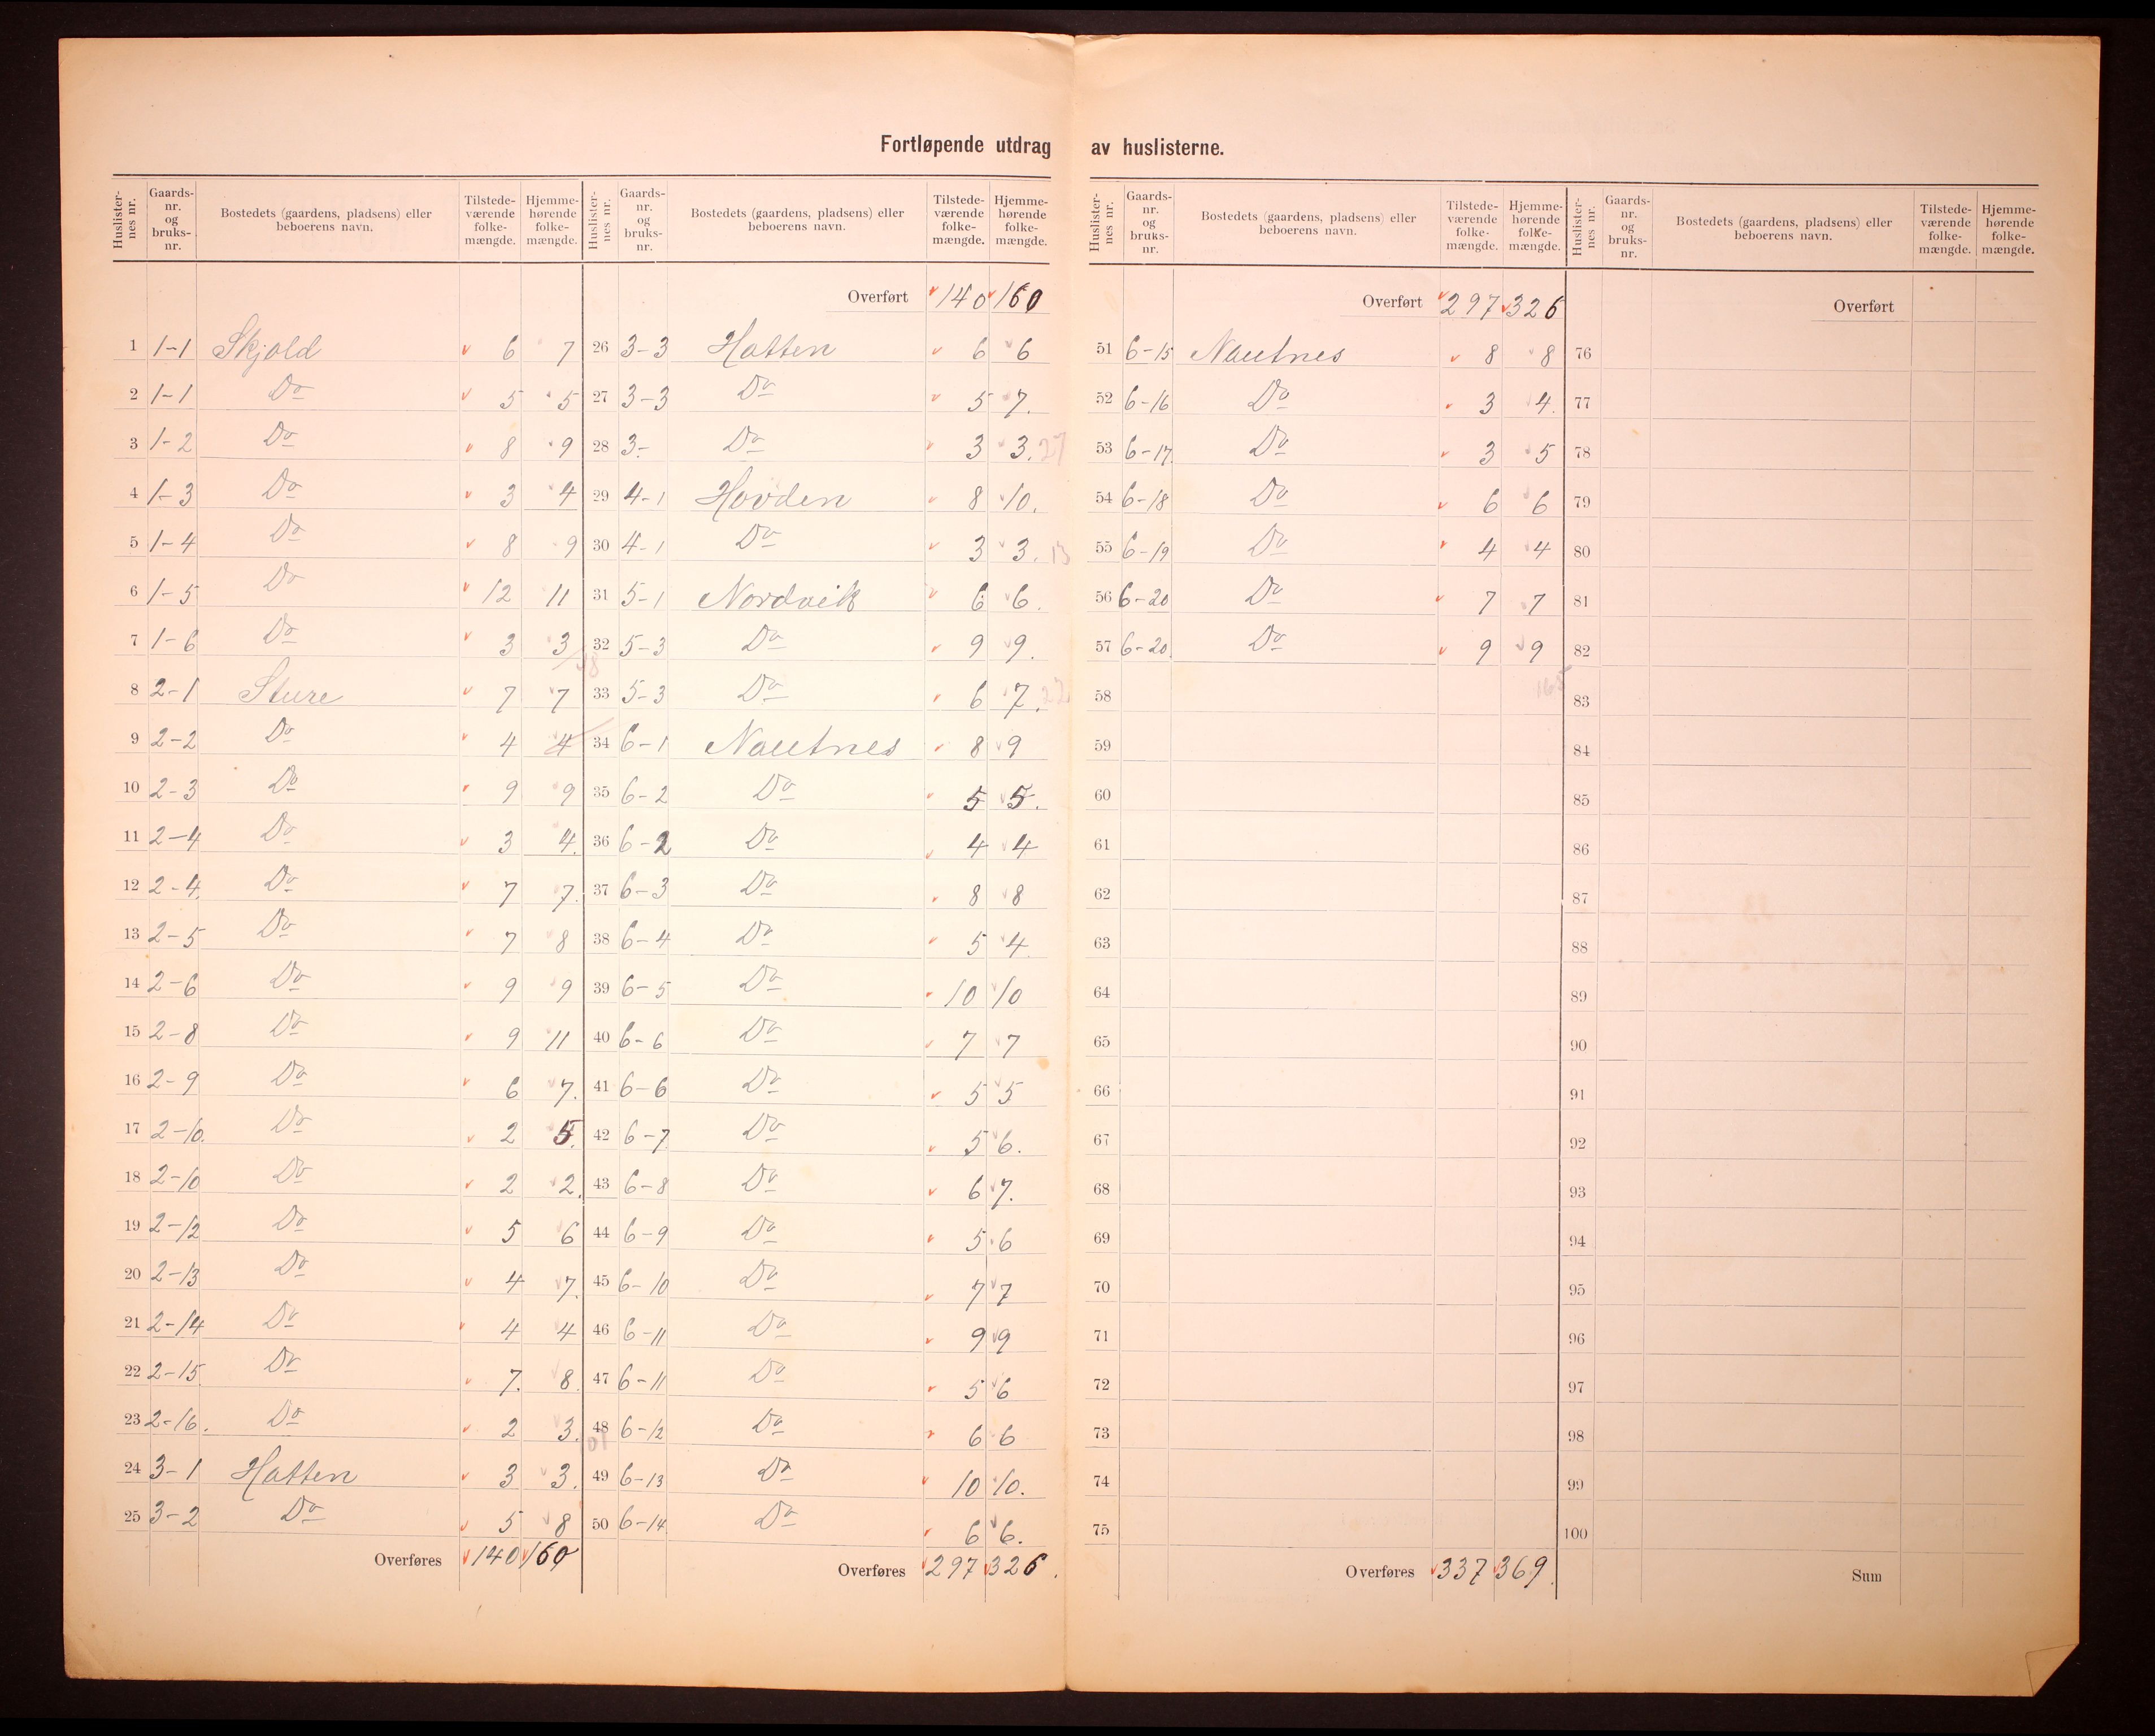 Fortløpende utdrag av huslisterne.
Huslisternes nr. Gaardsnr. og bruksnr. Bostedets (gaardens, pladsens) eller beboerens navn. Tilstedeværende folkemængde. Hjemmehørende folkemængde.
1 1-1 Skjold 6 7
2 1-1 Do 5 5
3 1-2 Do 8 9
4 1-3 Do 3 4
5 1-4 Do 8 9
6 1-5 Do 12 11
7 1-6 Do 3 3
8 2-1 Sture 7 7
9 2-2 Do 4 4
10 2-3 Do 9 9
11 2-4 Do 3 4.
12 2-4. Do 7 7.
13 2-5 Do 7 8
14 2-6 Do 9 9
15 2-8 Do 9 11
16 2-9 Do 6 7.
17 2-10. Do 2 5.
18 2-10 Do 2 2.
19 2-12 Do 5 6
20 2-13 Do 4 7.
21 2-14 Do 4 4
22 2-15. Do 7. 8.
23 2-16. Do 2 3.
24 3-1 Hatten 3 3.
25 3-2 Do 5 8
Overføres 140 160
Huslisternes nr. Gaardsnr. og bruksnr. Bostedets (gaardens, pladsens) eller beboerens navn. Tilstedeværende folkemængde. Hjemmehørende folkemængde.
Overført 140 160
26 3-3 Hatten 6 6
27 3-3 Do 5 7.
28 3- Do 3 3. 27
29 4-1 Hovden 8 10.
30 4-1 Do 3 3. 13
31 5-1 Nordvik 6 6.
32 5-3 Do 9 9.
33 5-3 Do 6 7. 22
34 6-1 Nautnes 8 9
35 6-2 Do 5 5.
36 6-2 Do 4 4
37 6-3 Do 8 8
38 6-4 Do 5 4.
39 6-5 Do 10 10
40 6-6 Do 7 7
41 6-6 Do 5 5
42 6-7 Do 5 6.
43 6-8 Do 6 7.
44 6-9 Do 5 6
45 6-10 Do 7 7
46 6-11 Do 9 9
47 6-11 Do 5 6
48 6-12 Do 6 6
49 6-13 Do 10 10.
50 6-14 Do 6 6.
Overføres 297 326.
Huslisternes nr. Gaardsnr. og bruksnr. Bostedets (gaardens, pladsens) eller beboerens navn. Tilstedeværende folkemængde. Hjemmehørende folkemængde.
Overført 297 326
51 6-15 Nautnes 8 8
52 6-16 Do 3 4.
53 6-17. Do 3 5
54 6-18 Do 6 6
55 6-19 Do 4 4
56 6-20 Do 7 7
57 6-20. Do 9 9
58 165
59
60
61
62
63
64
65
66
67
68
69
70
71
72
73
74
75
Overføres 337 369.
Huslisternes nr. Gaardsnr. og bruksnr. Bostedets (gaardens, pladsens) eller beboerens navn. Tilstedeværende folkemængde. Hjemmehørende folkemængde.
Overført
76
77
78
79
80
81
82
83
84
85
86
87
88
89
90
91
92
93
94
95
96
97
98
99
100
Sum